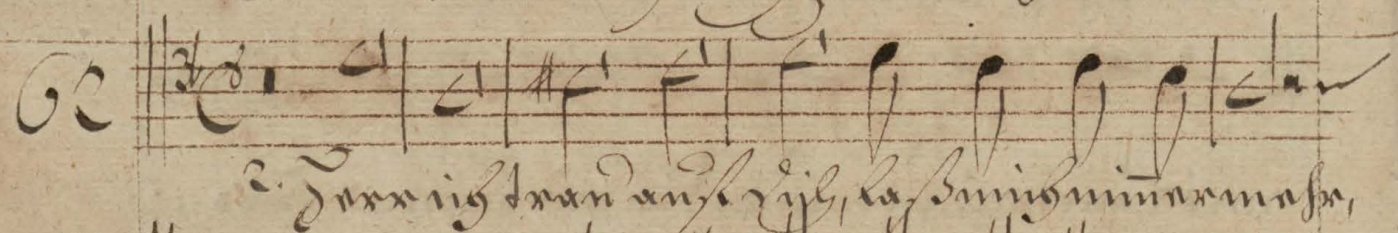 62
2. Herr ich trau auff dich, laß mich nim̄ermehr,